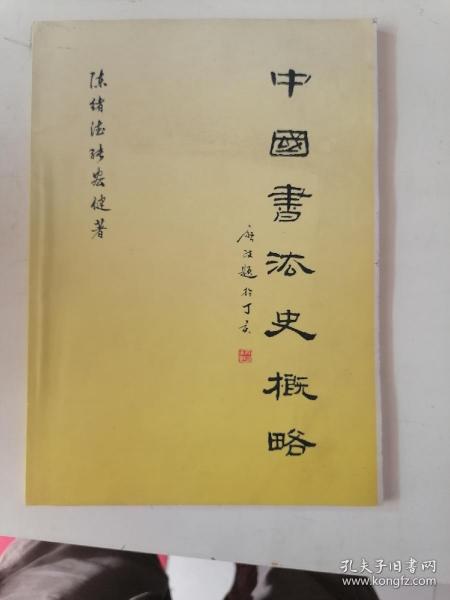 中國書法史概略
题於丁亥
陈绪德张宏健著
孔夫子旧书网
www.kongfz.com